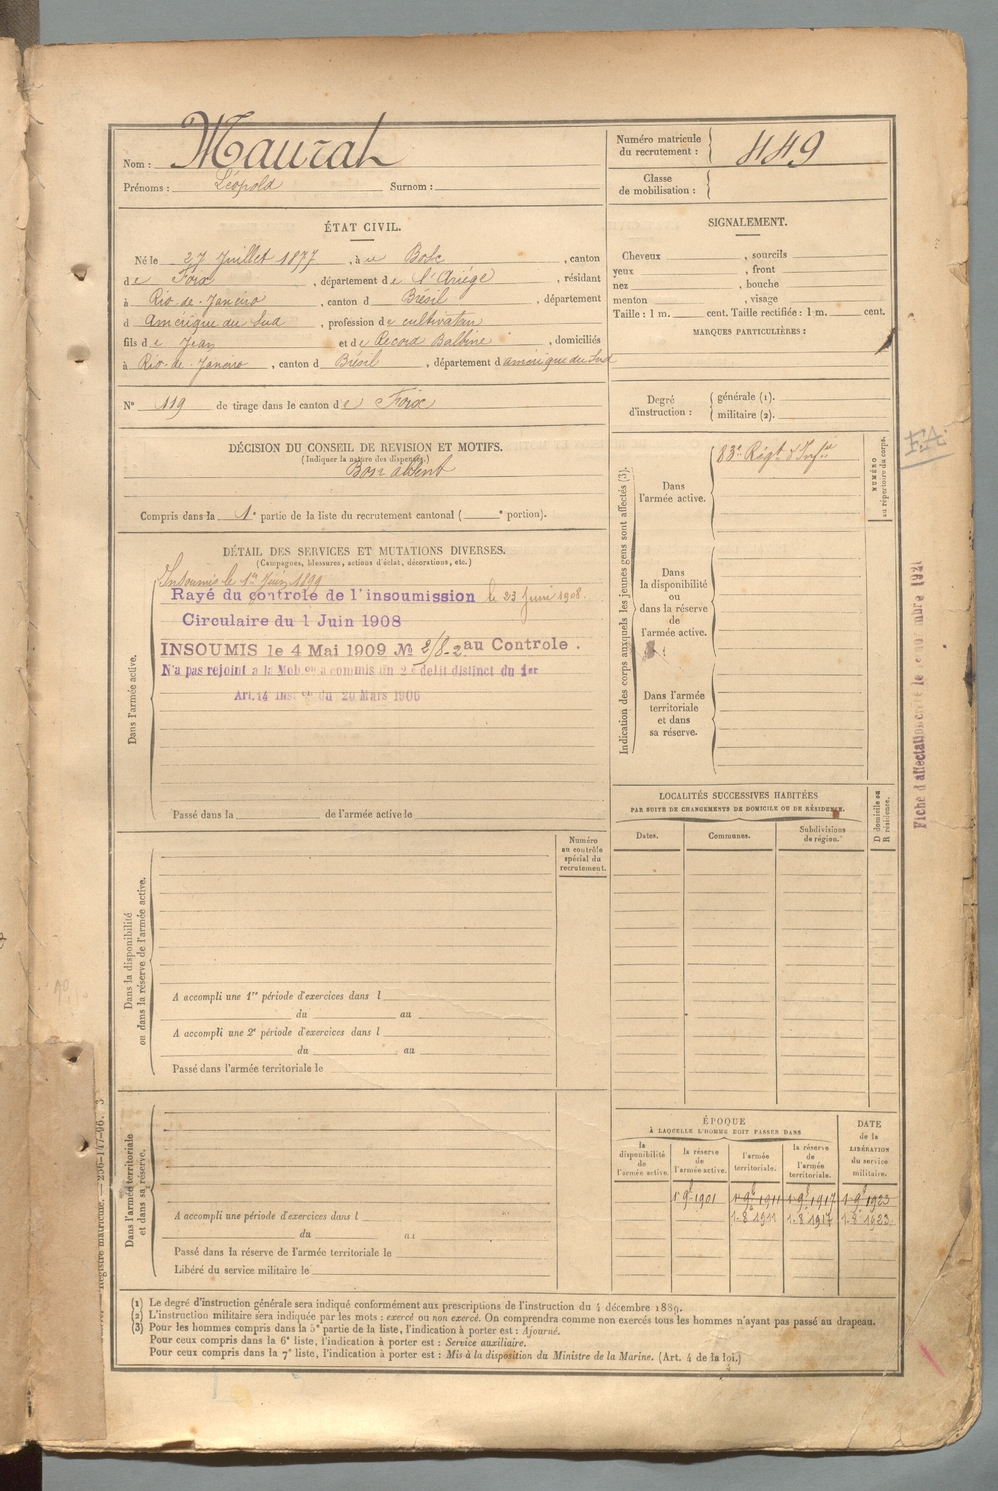 Nom : Maurat
Prénoms : Léopold Surnom :
Numéro matricule du recrutement : 449
Classe de mobilisation :
ÉTAT CIVIL.
Né le 27 Juillet 1877, à Bosc, canton
de Foix, département de l'Ariège, résidant
à Rio-de-Janeiro, canton d Brésil, département
d Amérique du Sud, profession de cultivateur
fils de Jean et de Record Balbine, domiciliés
à Rio-de-Janeiro, canton d Brésil, département d'amérique du Sud
N° 119 de tirage dans le canton de Foix
SIGNALEMENT.
Cheveux , sourcils
yeux , front
nez , bouche
menton , visage
Taille : 1 m. cent. Taille rectifiée : 1 m. cent.
MARQUES PARTICULIÈRES :
Degré d'instruction : générale (1).
militaire (2).
DÉCISION DU CONSEIL DE REVISION ET MOTIFS.
(Indiquer la nature des dispenses.)
Bon absent
Compris dans la 1e partie de la liste du recrutement cantonal ( e portion).
DÉTAIL DES SERVICES ET MUTATIONS DIVERSES.
(Campagnes, blessures, actions d'éclat, décorations, etc.)
Dans l'armée active.
Insoumis le 1er Juin 1899
Rayé du controle de l'insoumission le 23 Juin 1908.
Circulaire du 1 Juin 1908
INSOUMIS le 4 Mai 1909 № 2/8-2 au Controle.
N'a pas rejoint a la Mob.on a commis un 2e delit distinct du 1er
Art.14 Inston du 20 Mars 1906
Passé dans la de l'armée active le
Indication des corps auxquels les jeunes gens sont affectés (3).
Dans l'armée active.
83e Régt d'Infie
NUMÉRO au répertoire du corps.
F.A.
Dans la disponibilité ou dans la réserve de l'armée active.
Dans l'armée territoriale et dans sa réserve.
LOCALITÉS SUCCESSIVES HABITÉES
PAR SUITE DE CHANGEMENTS DE DOMICILE OU DE RÉSIDENCE.
Dates. Communes. Subdivisions de région.
D domicile ou R résidence.
Numéro au contrôle spécial du recrutement.
Dans la disponibilité ou dans la réserve de l'armée active.
A accompli une 1re période d'exercices dans l
du au
A accompli une 2e période d'exercices dans l
du au
Passé dans l'armée territoriale le
Dans l'armée territoriale et dans sa réserve.
A accompli une période d'exercices dans l
du au
Passé dans la réserve de l'armée territoriale le
Libéré du service militaire le
ÉPOQUE
À LAQUELLE L'HOMME DOIT PASSER DANS
la disponibilité de l'armée active. la réserve de l'armée active. l'armée territoriale. la réserve de l'armée territoriale.
DATE de la LIBÉRATION du service militaire.
1r 9b 1901 1r 9b 1911 1r 9b 1917 1r 9b 1923
1-8b 1911 1-8b 1917 1-8b 1923
(1) Le degré d'instruction générale sera indiqué conformément aux prescriptions de l'instruction du 4 décembre 1889.
(2) L'instruction militaire sera indiquée par les mots : exercé ou non exercé. On comprendra comme non exercés tous les hommes n'ayant pas passé au drapeau.
(3) Pour les hommes compris dans la 5e partie de la liste, l'indication à porter est : Ajourné.
Pour ceux compris dans la 6e liste, l'indication à porter est : Service auxiliaire.
Pour ceux compris dans la 7e liste, l'indication à porter est : Mis à la disposition du Ministre de la Marine. (Art. 4 de la loi.)